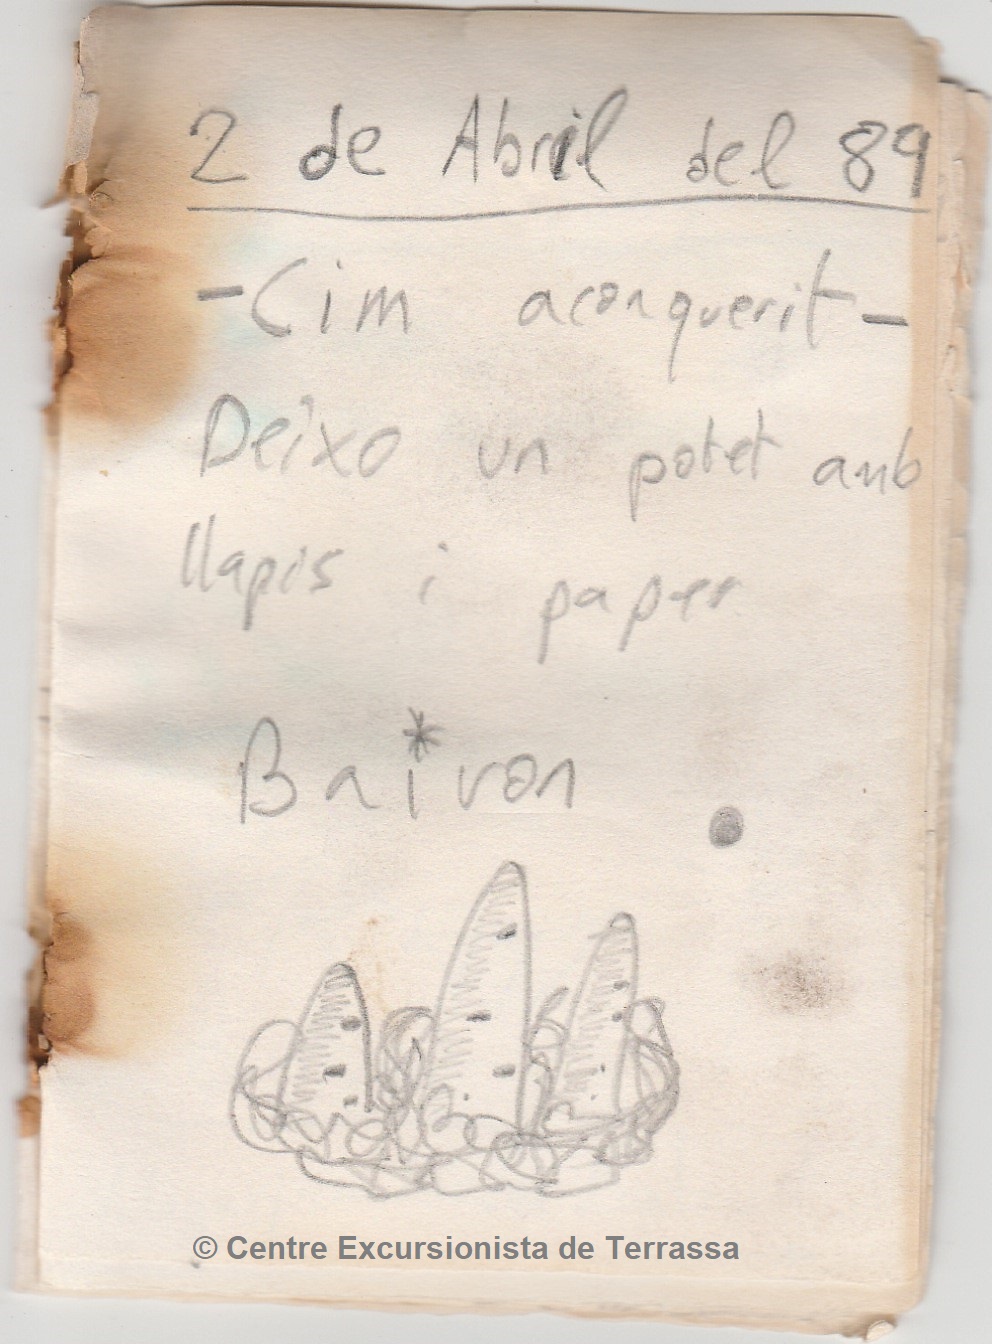 2 de Abril del 89
- Cim aconquerit -
Deixo un potet amb
llapis i paper
Baivon
© Centre Excursionista de Terrassa